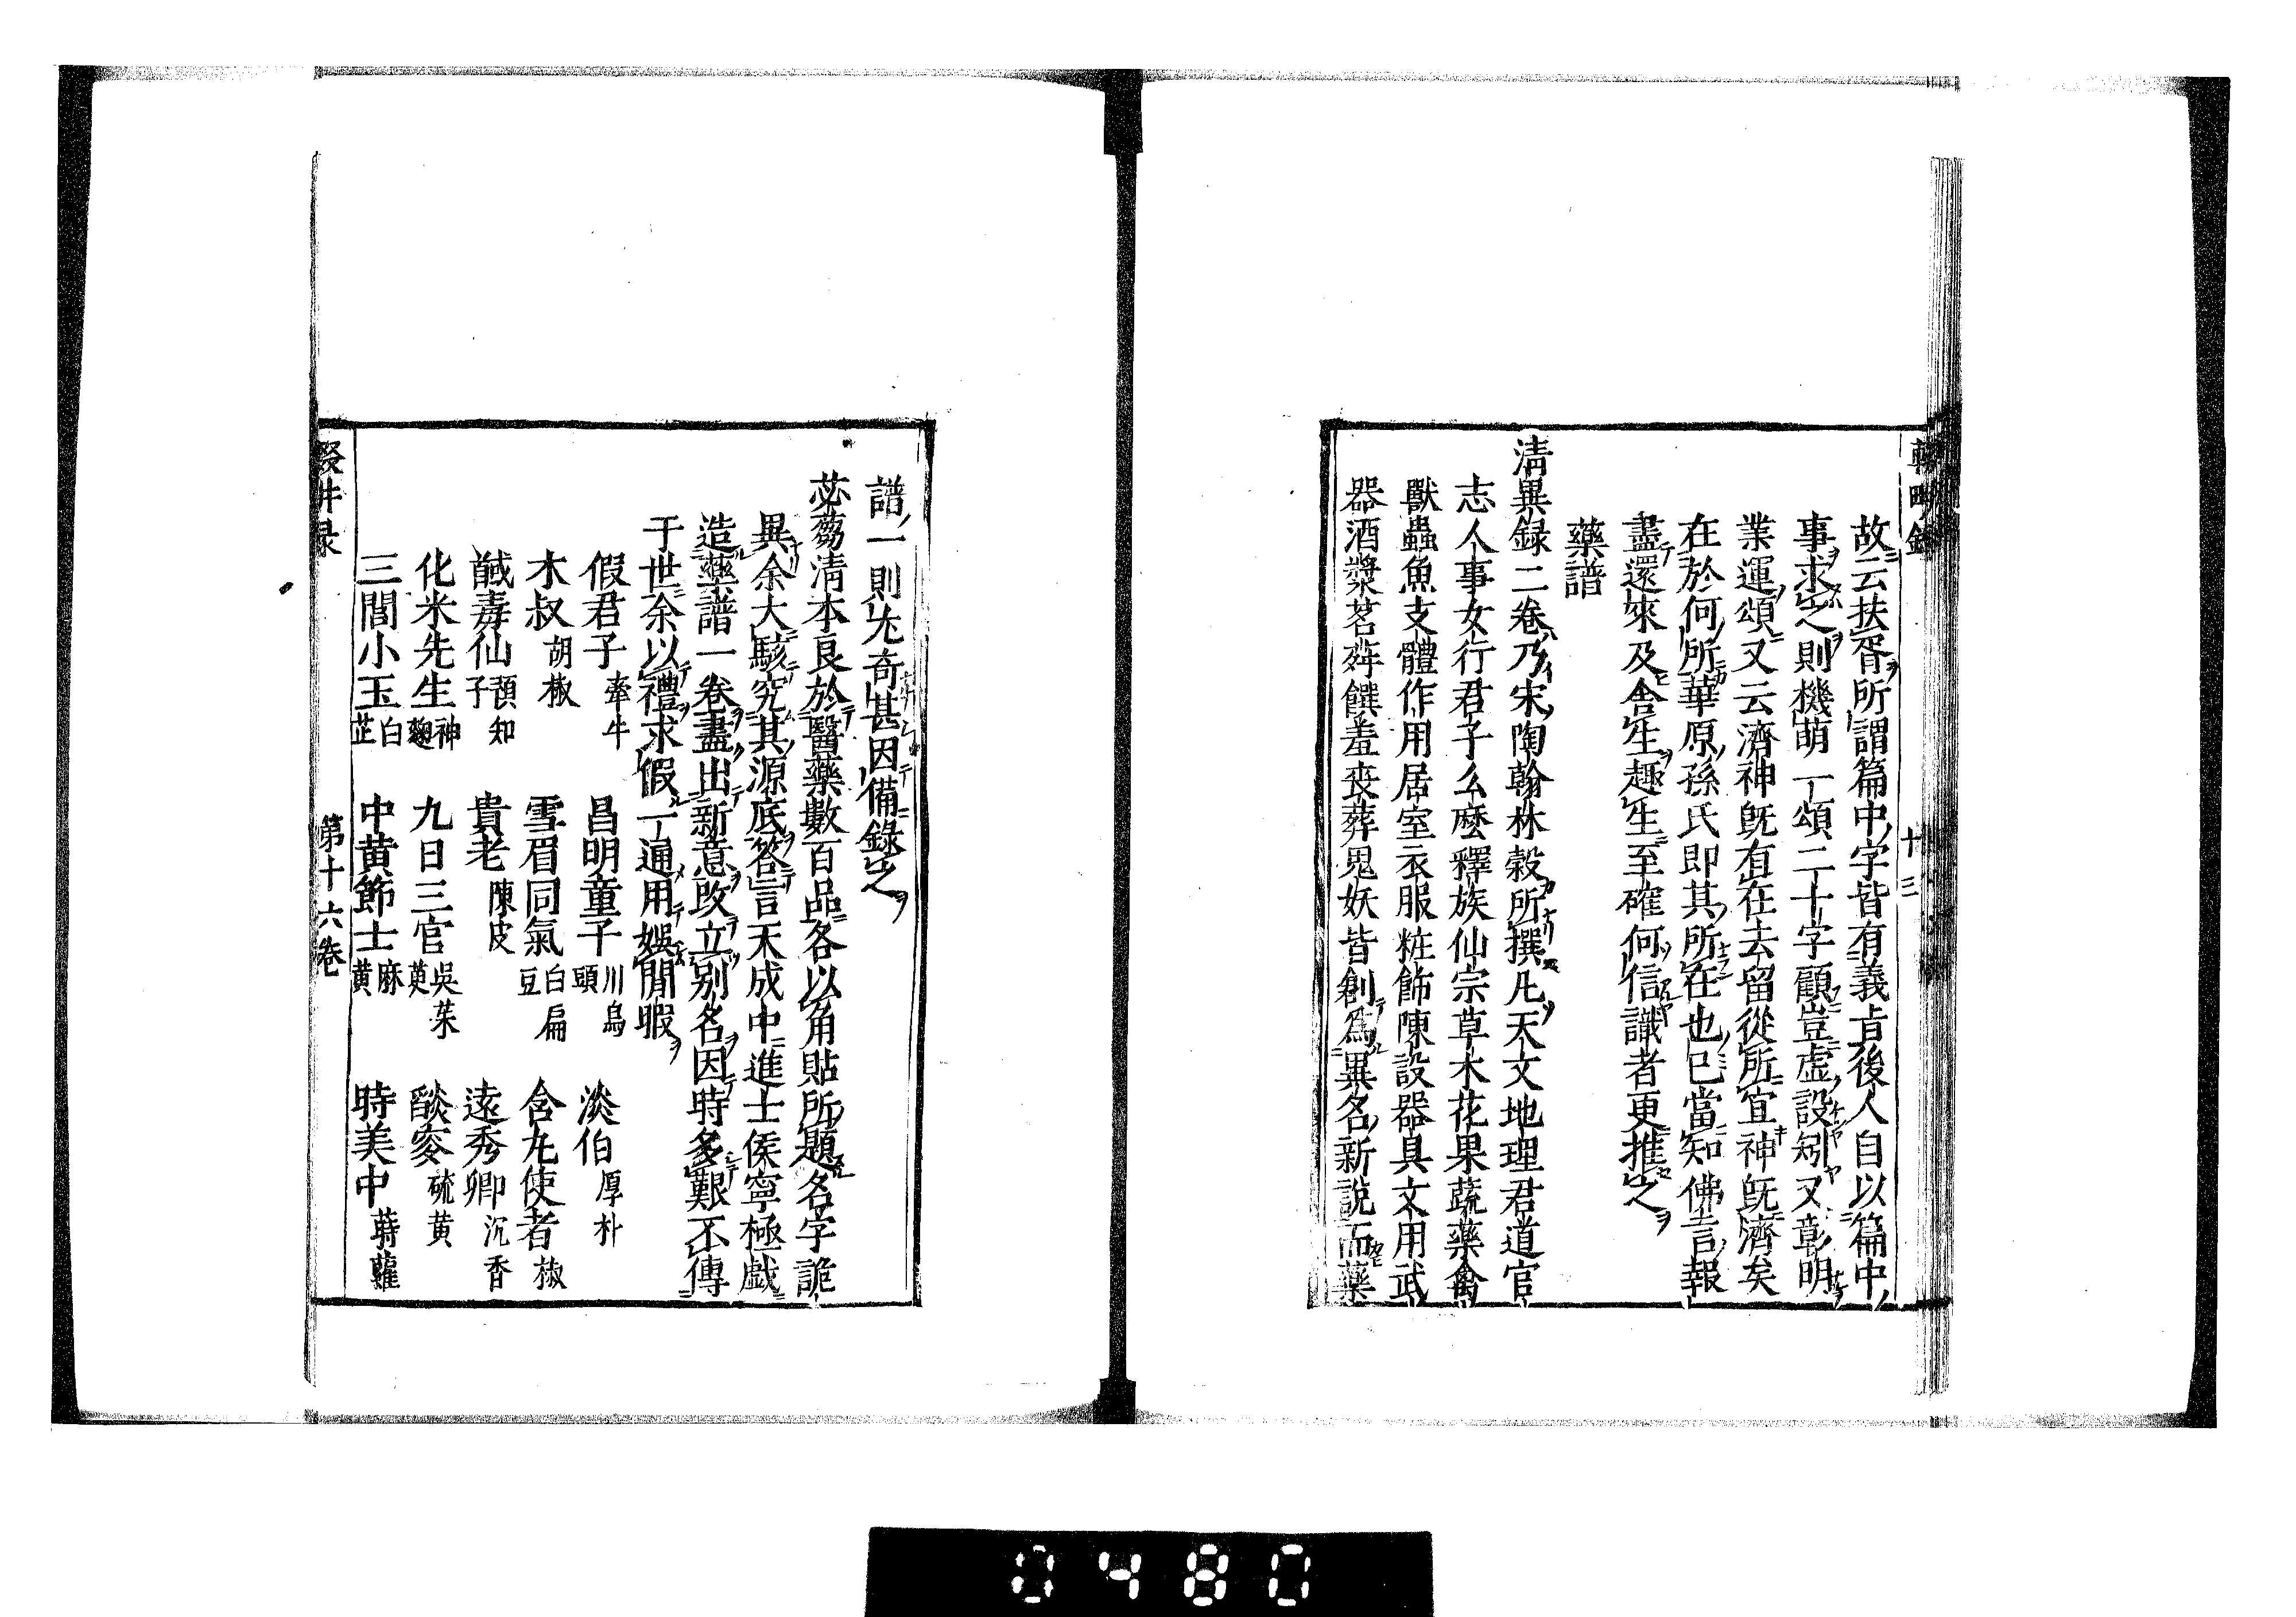 故云扶胥所謂篇中字皆有義㫖後人自以篇中
事求之則機萌一丁頌二十字顧豈虚設矧又彰明
業運頌又云濟神既有在去留從所宜神既濟矣
在於何所華原孫氏即其所在也已當知佛言報
盡還來及舎生趣生至確何信識者更推之
藥譜
清異録二卷乃宋陶翰林穀所撰凡天文地理君道官
志人事女行君子么麼釋族仙宗草木花果蔬藥禽
獸蟲魚支體作用居室衣服粧飾陳設器具文用武
器酒漿茗荈饌羞喪葬鬼妖皆創爲異名新說而藥
十三
譜一則尤奇甚因備錄之
苾蒭清本良於醫藥數百品各以角貼所題名字詭
異余大駭究其源底答言天成中進士侯寧極戯
造藥譜一卷盡出新意改立别名因時多艱不傳
于世余以禮求假一通用娛閒暇
假君子牽牛 昌明童子川烏頭 淡伯厚朴
木叔胡椒 雪眉同氣白扁豆 含丸使者椒
馘毒仙預知子 貴老陳皮 遠秀卿沉香
化米先生神麴 九日三官吳茱萸 燄叟硫黄
三閭小玉白芷 中黄節士麻黄 時美中蒔蘿
第十六卷